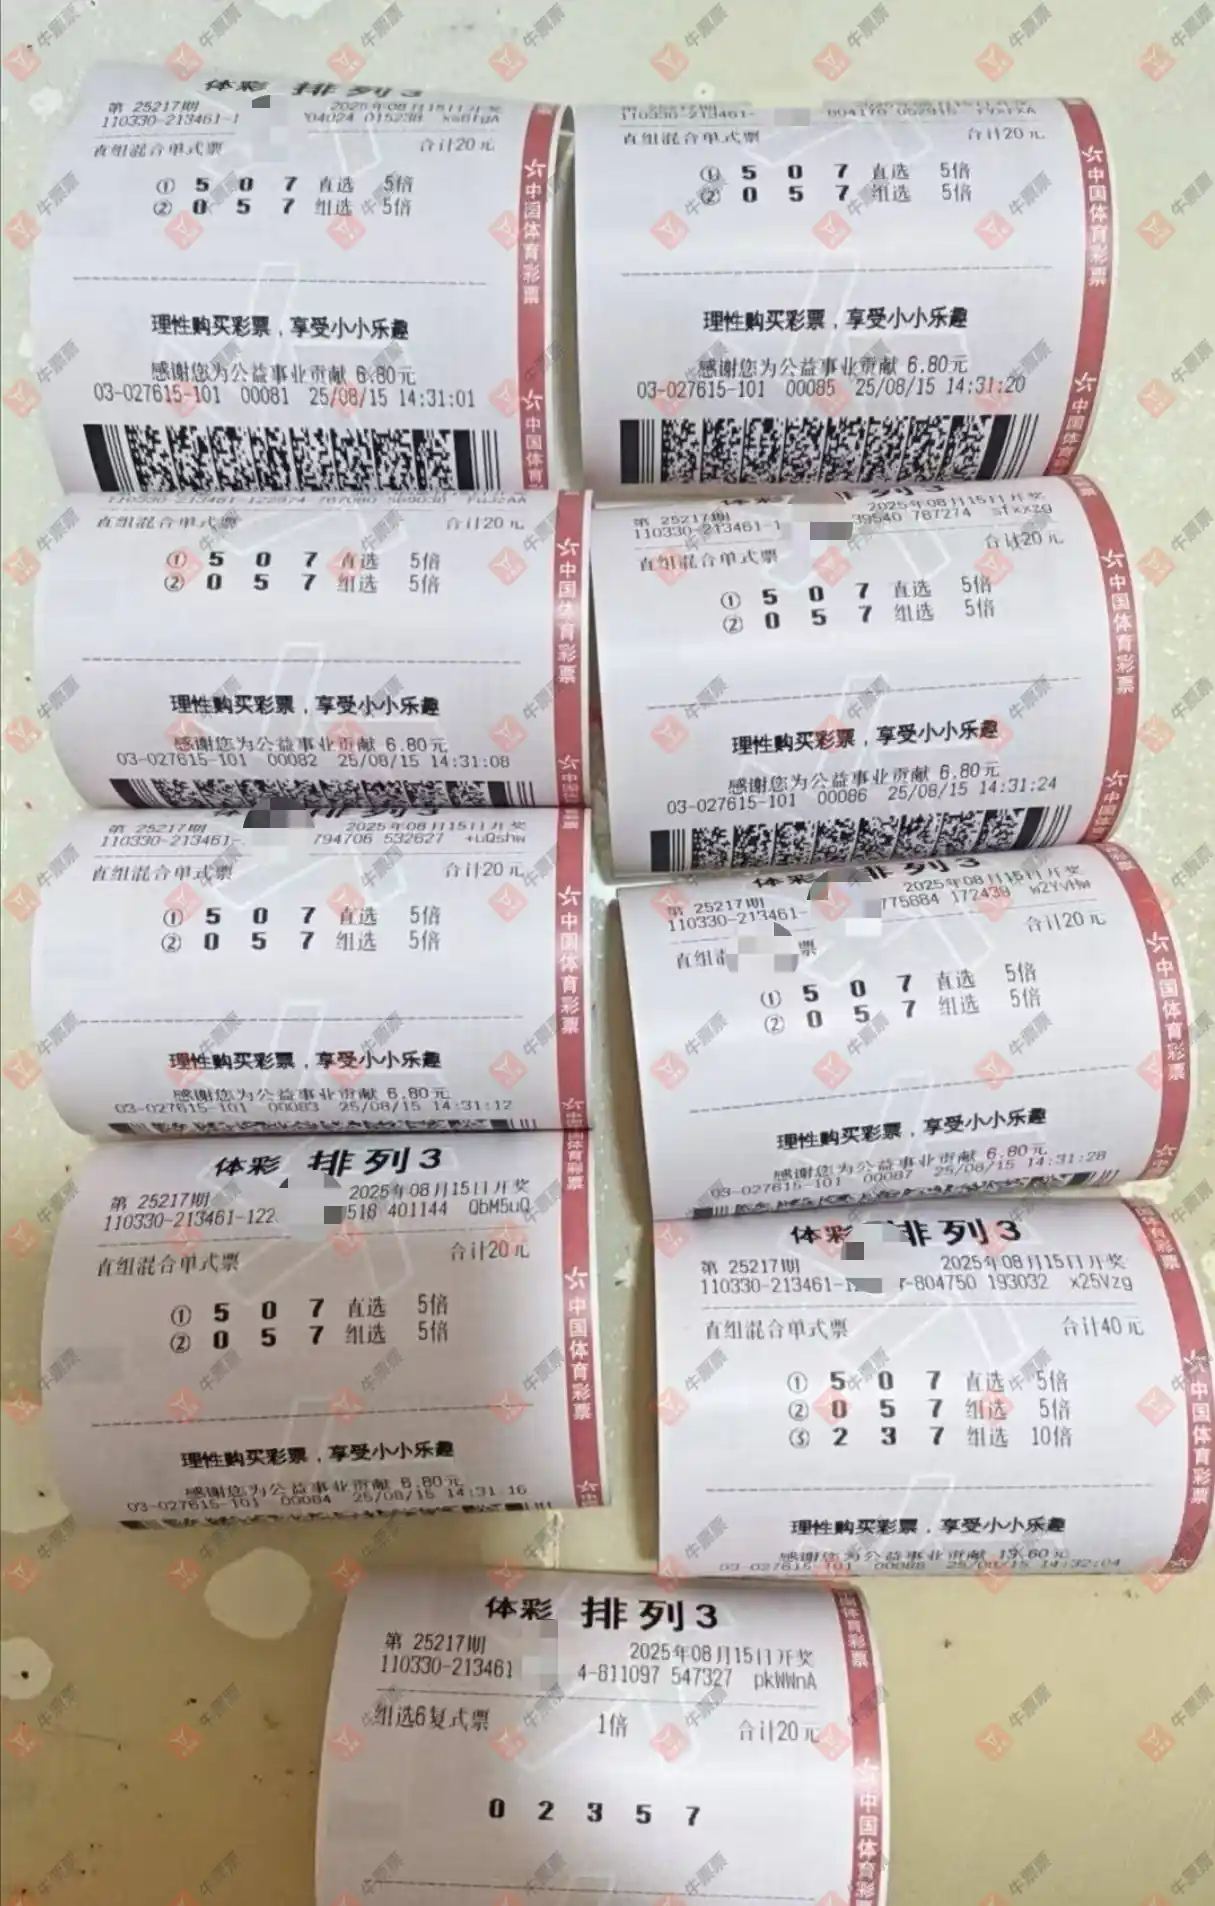 体彩 排列3
第 25217期 2025年08月15日开奖
110330-213461-1 04024 015238
直组混合单式票 合计20元
① 5 0 7 直选 5倍
② 0 5 7 组选 5倍
理性购买彩票，享受小小乐趣
感谢您为公益事业贡献 6.80元
03-027615-101 00081 25/08/15 14:31:01
中国体育彩票
110330-213461- 004170 052915
直组混合单式票 合计20元
① 5 0 7 直选 5倍
② 0 5 7 组选 5倍
理性购买彩票，享受小小乐趣
感谢您为公益事业贡献 6.80元
03-027615-101 00085 25/08/15 14:31:20
中国体育彩票
直组混合单式票 合计20元
① 5 0 7 直选 5倍
② 0 5 7 组选 5倍
理性购买彩票，享受小小乐趣
感谢您为公益事业贡献 6.80元
03-027615-101 00082 25/08/15 14:31:08
中国体育彩票
体彩 排列3
第 25217期 2025年08月15日开奖
110330-213461-1 39540 787274 sfxxzg
直组混合单式票 合计20元
① 5 0 7 直选 5倍
② 0 5 7 组选 5倍
理性购买彩票，享受小小乐趣
感谢您为公益事业贡献 6.80元
03-027615-101 00086 25/08/15 14:31:24
中国体育彩票
排列3
第 25217期 2025年08月15日开奖
110330-213461- 794706 532627 +uQshw
直组混合单式票 合计20元
① 5 0 7 直选 5倍
② 0 5 7 组选 5倍
理性购买彩票，享受小小乐趣
感谢您为公益事业贡献 6.80元
03-027615-101 00083 25/08/15 14:31:12
中国体育彩票
体彩 排列3
第 25217期 2025年08月15日开奖
110330-213461- 775884 172439 W2YvHw
直组 票 合计20元
① 5 0 7 直选 5倍
② 0 5 7 组选 5倍
理性购买彩票，享受小小乐趣
感谢您为公益事业贡献 6.80元
03-027615-101 00087 25/08/15 14:31:28
中国体育彩票
体彩 排列3
第 25217期 2025年08月15日开奖
110330-213461-122 518 401144 QbM5uQ
直组混合单式票 合计20元
① 5 0 7 直选 5倍
② 0 5 7 组选 5倍
理性购买彩票，享受小小乐趣
感谢您为公益事业贡献 6.80元
03-027615-101 00084 25/08/15 14:31:16
中国体育彩票
体彩 排列3
第 25217期 2025年08月15日开奖
110330-213461-1 -804750 193032 x25Vzg
直组混合单式票 合计40元
① 5 0 7 直选 5倍
② 0 5 7 组选 5倍
③ 2 3 7 组选 10倍
理性购买彩票，享受小小乐趣
感谢您为公益事业贡献 13.60元
03-027615-101 00088 25/08/15 14:32:04
中国体育彩票
体彩 排列3
第 25217期 2025年08月15日开奖
110330-213461 4-811097 547327 pkWWnA
组选6复式票 1倍 合计20元
0 2 3 5 7
中国体育彩票
牛票票